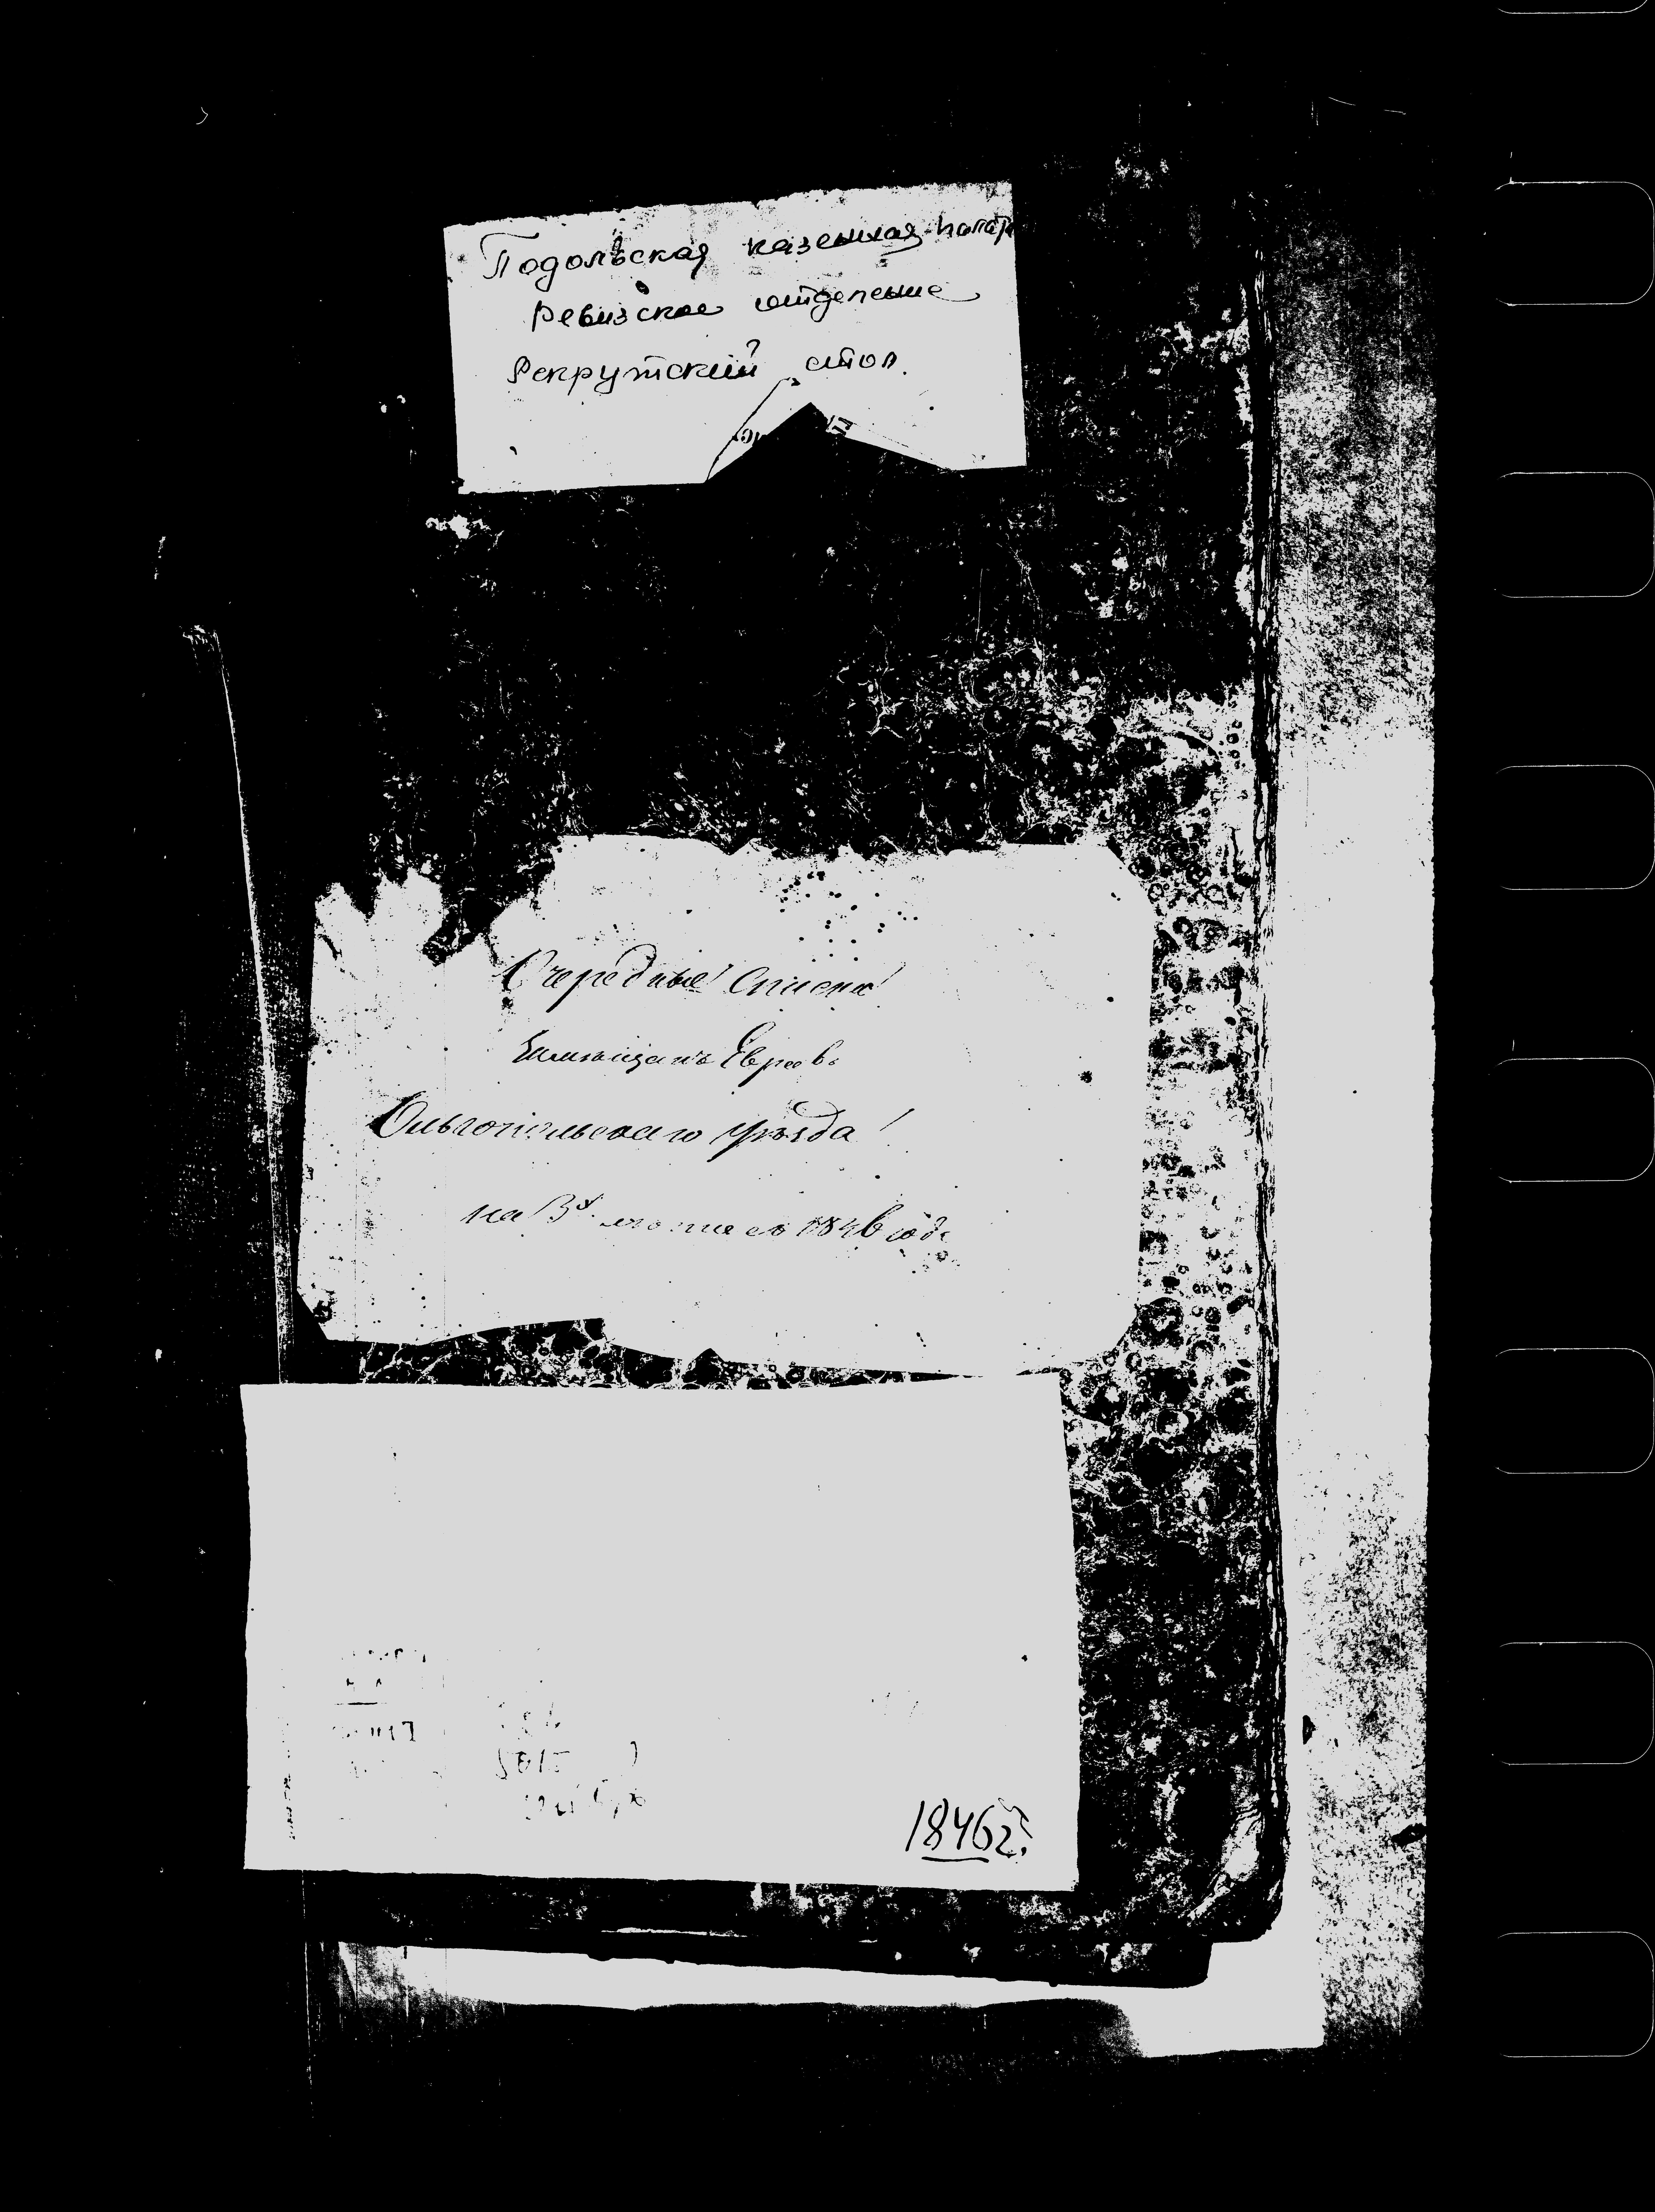 Подольская казенная палата
Ревизское отделение
Рекрутский стол.
Очередные списки
Евреевъ
Ольгопольскаго уѣзда
на 3й 1846 года
1846 г.